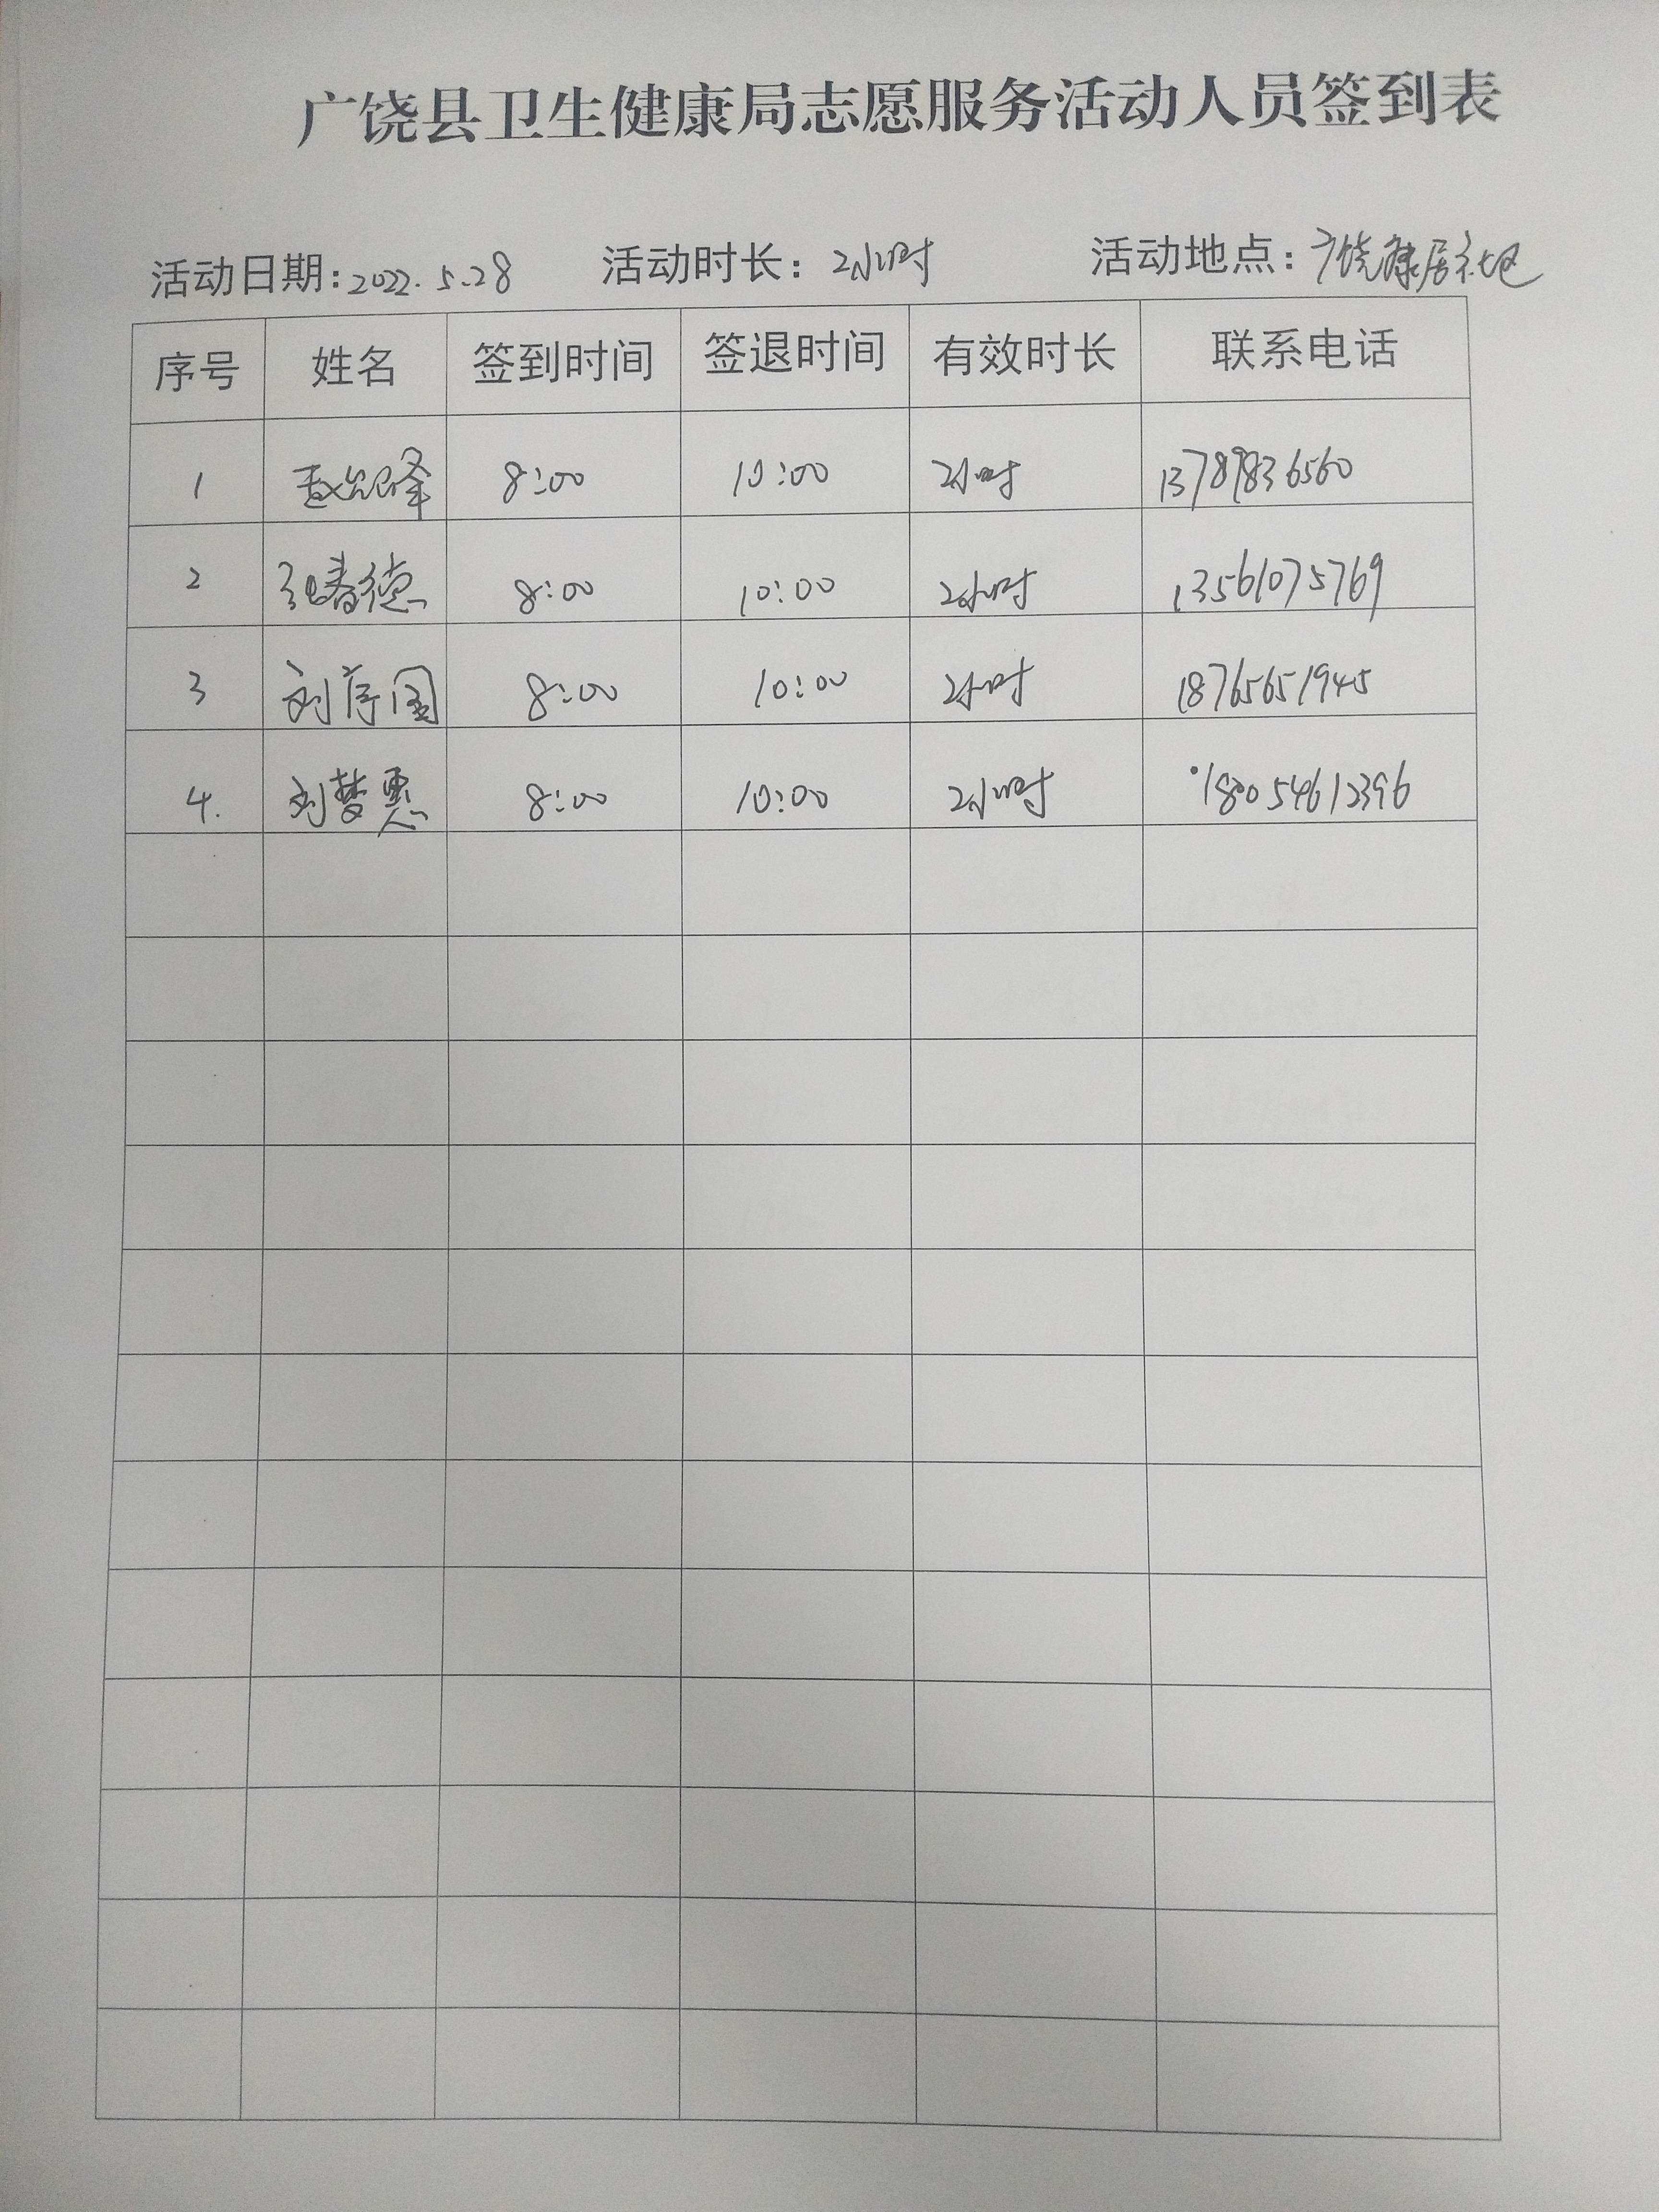 广饶县卫生健康局志愿服务活动人员签到表
活动日期:2022.5.28 活动时长:2小时 活动地点:广饶康居社区
序号 姓名 签到时间 签退时间 有效时长 联系电话
1 8:00 10:00 2小时 13789836560
2 张春德 8:00 10:00 2小时 13561075769
3 刘序国 8:00 10:00 2小时 18765651945
4. 刘梦惠 8:00 10:00 2小时 180054612396